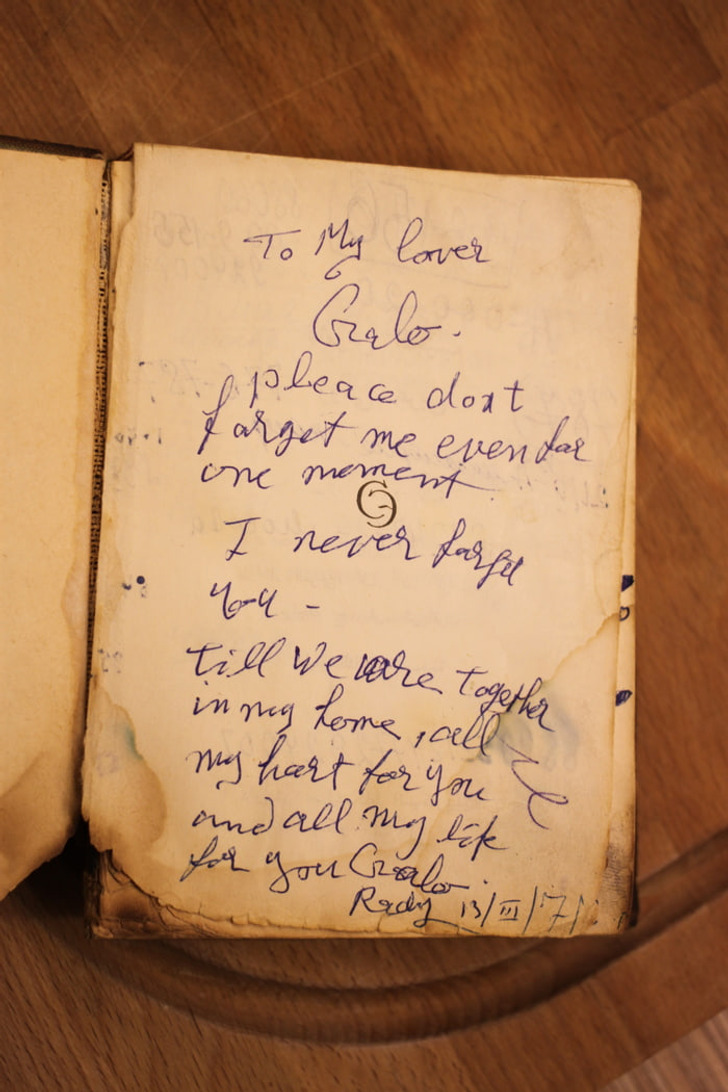 To My lover
Gralo.
pleace dont
farget me even far
one moment
I never farget
you -
till We are together
in my home, all
my hart for you
and all my life
for you Gralo.
Rady 13/III/7/